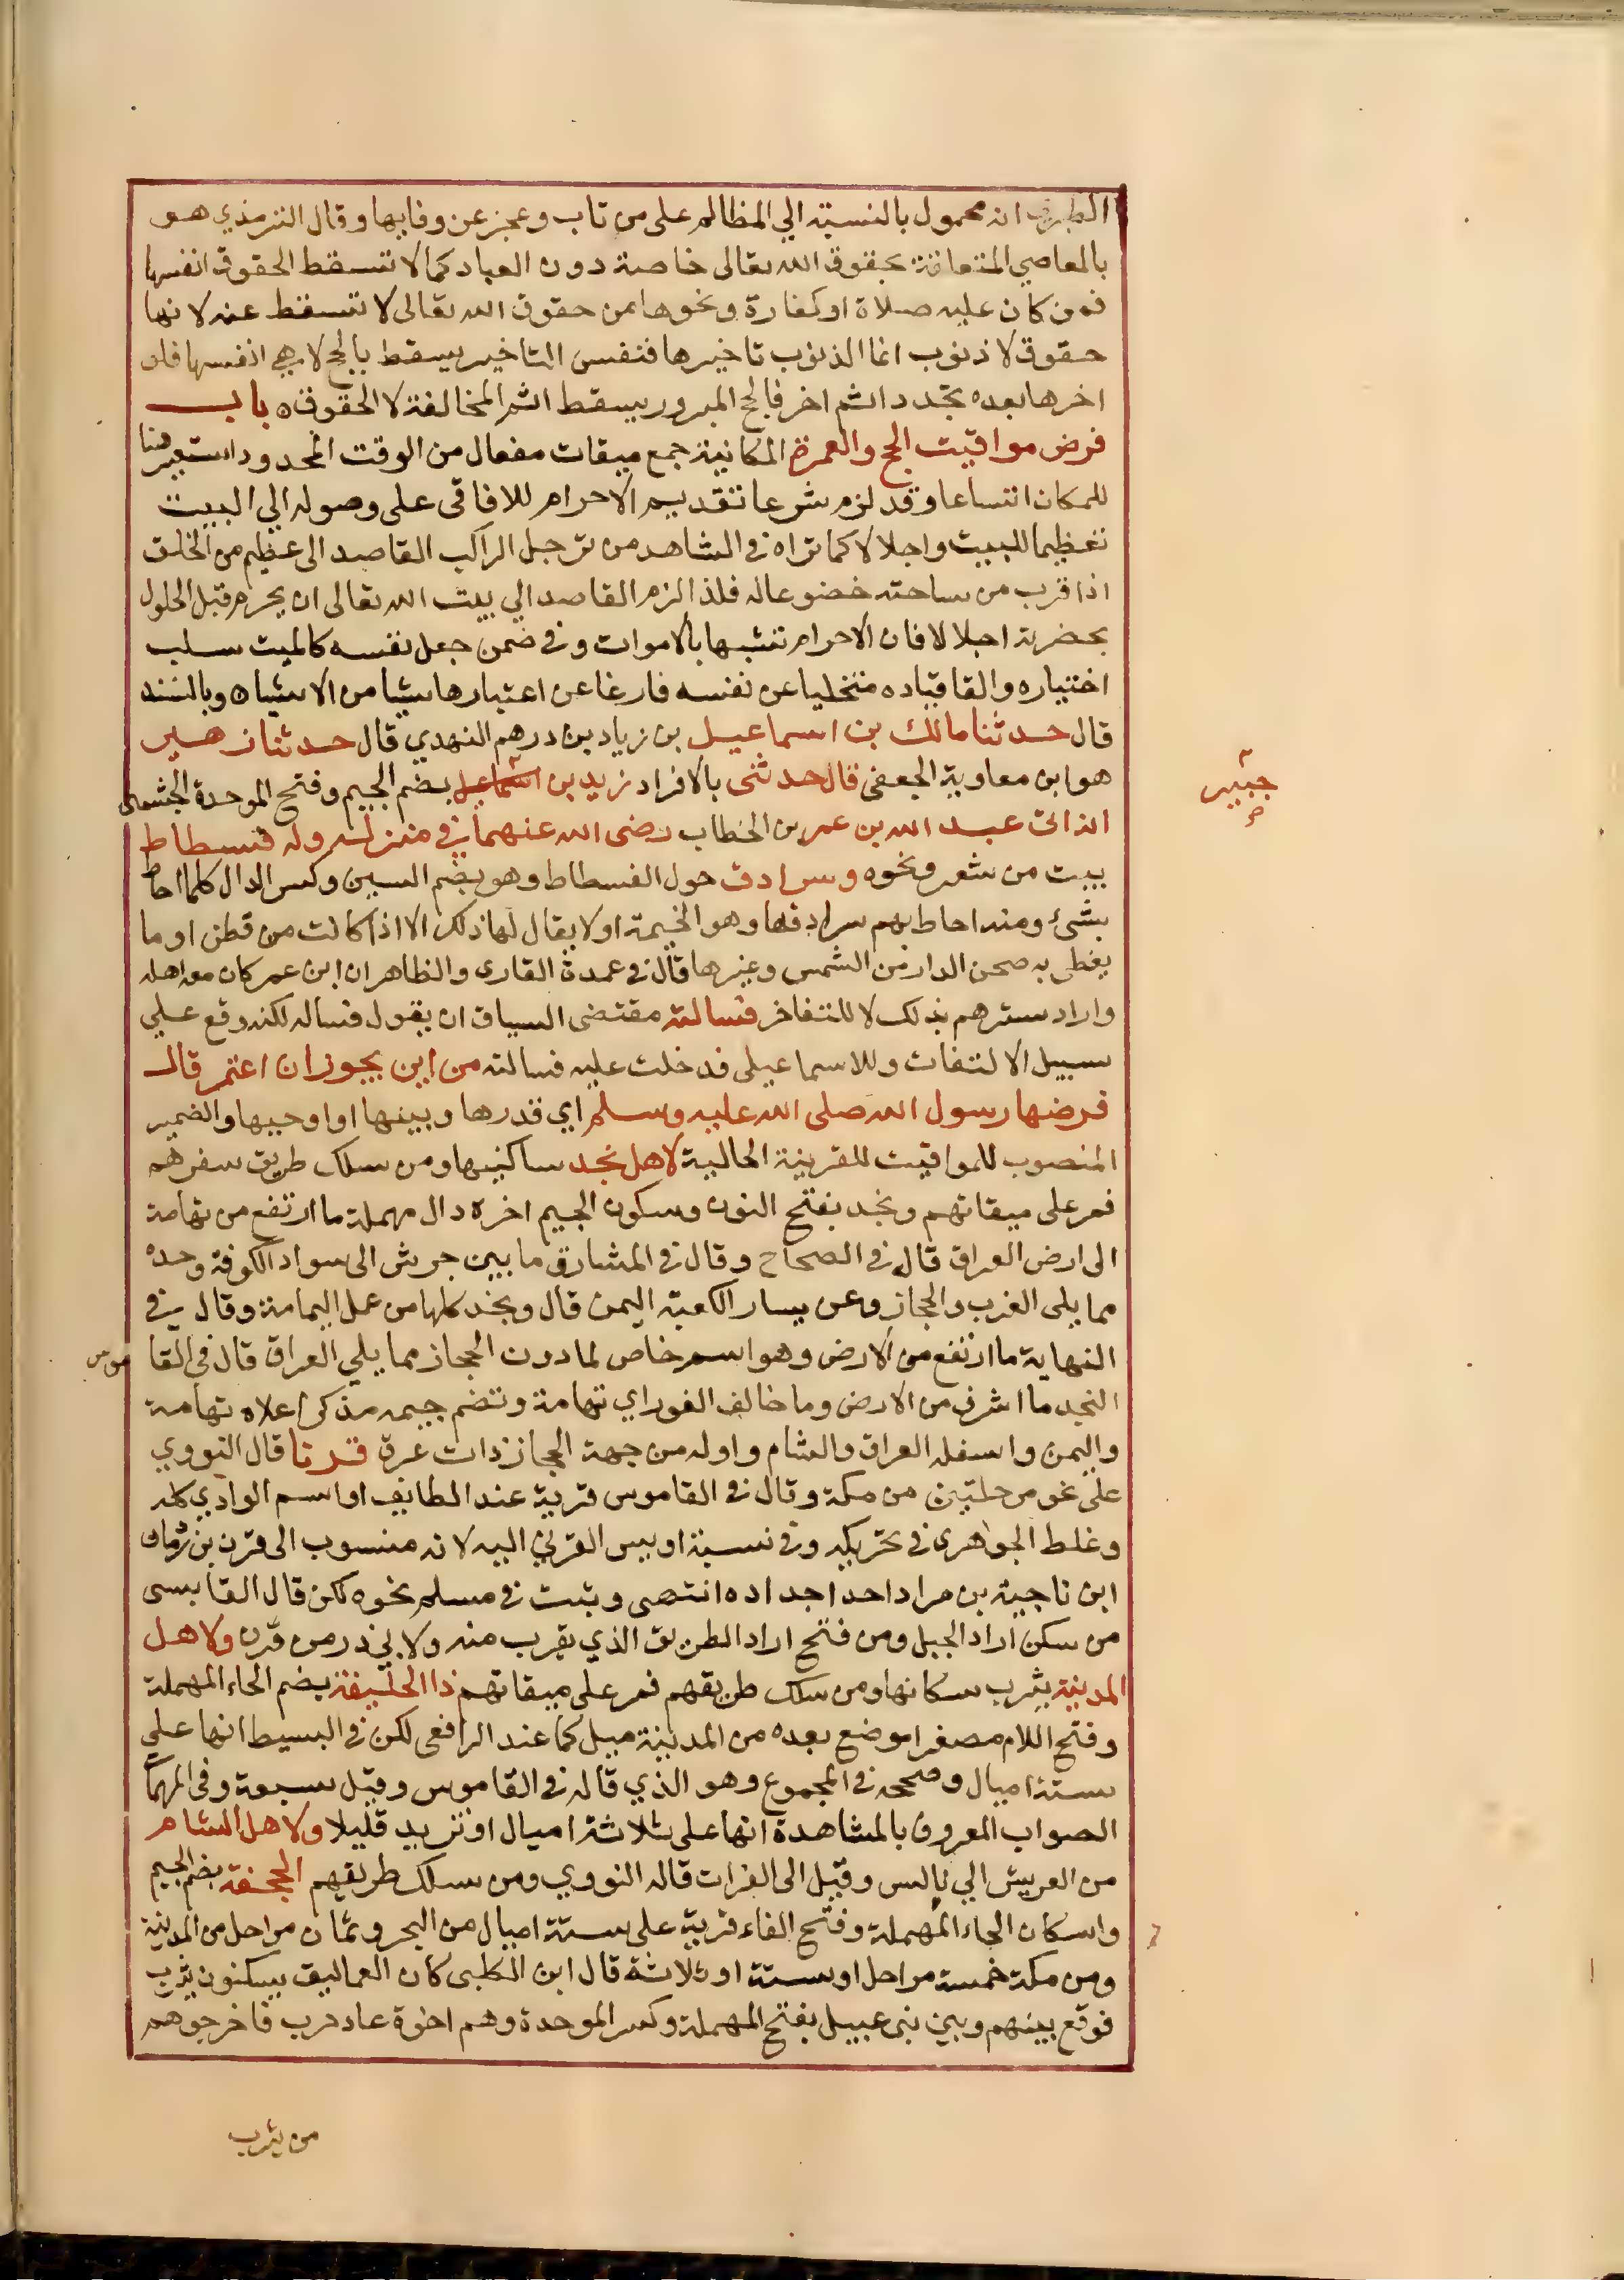 الطبري انه محمول بالنسبة الي المظالم على من تاب وعجز عن وفايها وقال الترمذي هو
بالمعاصي المتعلقة بحقوق الله تعالى خاصة دون العباد كما لا تسقط الحقوق انفسها
فمن كان عليه صلاة او كفارة ونحوها من حقوق الله تعالى لا تسقط عنه لانها
حقوق لا ذنوب انما الذنوب تاخيرها فنفس التاخير يسقط بالحج لا هي انفسها فلو
اخرها بعده تجدد اثم اخر فالحج المبرور يسقط اثم المخالفة لا الحقوق ٥ باب
فرض مواقيت الحج والعمرة المكانية جمع ميقات مفعال من الوقت المحدود استعير هنا
للمكان اتساعا وقد لزم شرعا تقديم الاحرام للافاقى على وصوله الي البيت
تعظيما للبيت واجلالا كما تراه في الشاهد من ترجل الراكب القاصد الى عظيم من الخلق
اذا قرب من ساحته خضوعا له فلذا لزم القاصد الي بيت الله تعالى ان يحرم قبل الحلول
بحضرته اجلالا فان الاحرام تشبها بالاموات وفي ضمن جعل نفسه كالميت سلب
اختياره والقا قياده متخليا عن نفسه فارغا عن اعتبارها شيا من الاشياه وبالسند
قال حدثنا مالك بن اسماعيل بن زياد بن درهم النهدي قال حدثنا زهير
هو ابن معاوية الجعفي قال حدثنى بالافراد زيد بن اسماعيل بضم الجيم وفتح الموحدة الجشمى
جبير
صح
انه اتى عبد الله بن عمر بن الخطاب رضى الله عنهما في منزله وله فسطاط
بيت من شعر ونحوه وسرادق حول الفسطاط وهو بضم السين وكسر الدال كلما احاط
بشئ ومنه احاط بهم سرادقها وهو الخيمة او لا يقال لها ذلك الا اذا كانت من قطن او ما
يغطى به صحن الدار من الشمس وغيرها قال في عمدة القارى والظاهر ان ابن عمر كان معه اهله
واراد سترهم بذلك لا للتفاخر فسالته مقتضى السياق ان يقول فساله لكنه وقع علي
سبيل الالتفات وللاسماعيلى فدخلت عليه فسالته من اين يجوز ان اعتمر قال
فرضها رسول الله صلى الله عليه وسلم اي قدرها وبينها او اوجبها والضمير
المنصوب للمواقيت للقرينة الحالية لاهل نجد ساكنيها ومن سلك طريق سفرهم
فمر على ميقاتهم ونجد بفتح النون وسكون الجيم اخره دال مهملة ما ارتفع من تهامة
الى ارض العراق قال في الصحاح وقال في المشارق ما بين جرش الى سواد الكوفة وحده
مما يلى الغرب والحجاز وعن يسار الكعبة اليمن قال ونجد كلها من عمل اليمامة وقال في
النهاية ما ارتفع من الارض وهو اسم خاص لما دون الحجاز مما يلي العراق قال في القاموس
النجد ما اشرف من الارض وما خالف الغور اي تهامة وتضم جيمه مذكر اعلاه تهامة
واليمن واسفله العراق والشام واوله من جهة الحجاز ذات عرق قرنا قال النووي
على نحو مرحلتين من مكة وقال في القاموس قرية عند الطايف او اسم الوادي كله
وغلط الجواهرى في تحريكه وفي نسبة اويس القرني اليه لانه منسوب الى قرن بن رثمان
ابن ناجية بن مراد احد اجداده انتهى وثبت في مسلم نحوه لكن قال القابسى
من سكن اراد الجبل ومن فتح اراد الطريق الذي يقرب منه ولابي ذر من قرن ولاهل
المدينة يثرب سكانها ومن سلك طريقهم فمر على ميقاتهم ذا الحليفة بضم الحاء المهملة
وفتح اللام مصغرا موضع بعده من المدينة ميل كما عند الرافعى لكن في البسيط انها علي
ستة اميال وصححه في المجموع وهو الذي قاله في القاموس وقيل سبعة وفى المهمات
الصواب المعروف بالمشاهدة انها على ثلاثة اميال او تزيد قليلا ولاهل الشام
من العريش الي بالس وقيل الى الفرات قاله النووي ومن سلك طريقهم الجحفة بضم الجيم
واسكان الحاء المهملة وفتح الفاء قرية على ستة اميال من البحر وثمان مراحل من المدينة
ومن مكة خمسة مراحل او ستة او ثلاثة قال ابن الكلبى كان العماليق يسكنون يثرب
فوقع بينهم وبين بنى عبيل بفتح المهملة وكسر الموحدة وهم اخوة عاد حرب فاخرجوهم
من يثرب